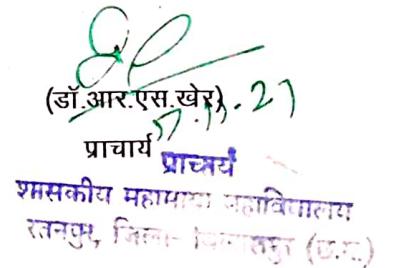 (डॉ.आर.एस.खेर)
प्राचार्य
प्राचार्य
शासकीय महामाया महाविद्यालय
रतनपुर, जिला- बिलासपुर (छ.ग.)